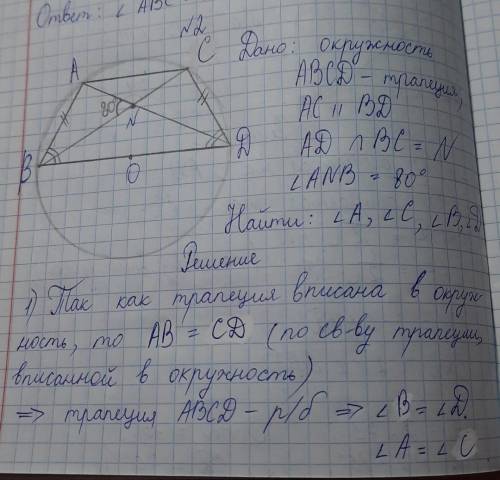 Ответ: ∠ ABC
N2
Дано: окружность
ABCD – трапеция,
AC || BD
AD ∩ BC = N
∠ANB = 80°
Найти: ∠A, ∠C, ∠B, ∠D
A
C
80°
N
B
O
D
Решение
1) Так как трапеция вписана в окруж-
ность, то AB = CD (по св-ву трапеции,
вписанной в окружность)
=> трапеция ABCD – р/б => ∠B = ∠D.
∠A = ∠C